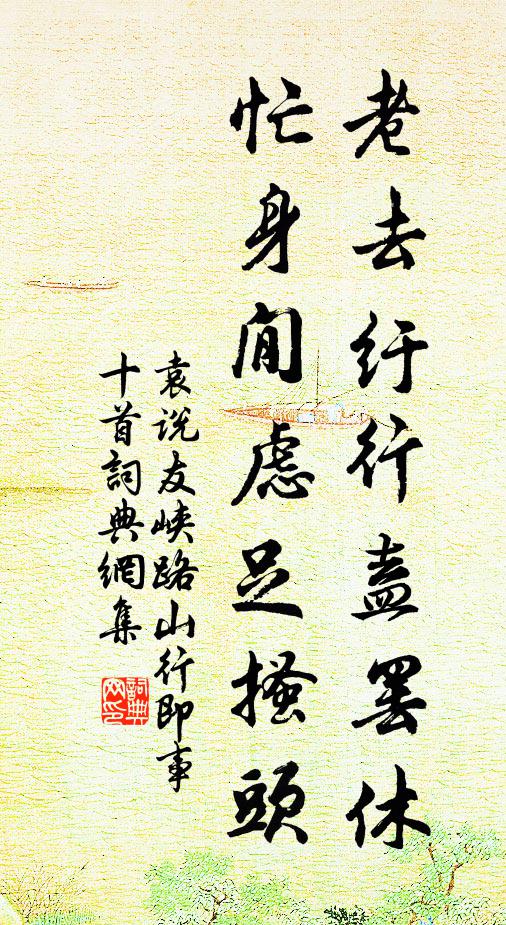 老去纡行盍罢休
忙身閒虑足搔頭
袁说友峡路山行即事
十首詞典網集
詞典网印